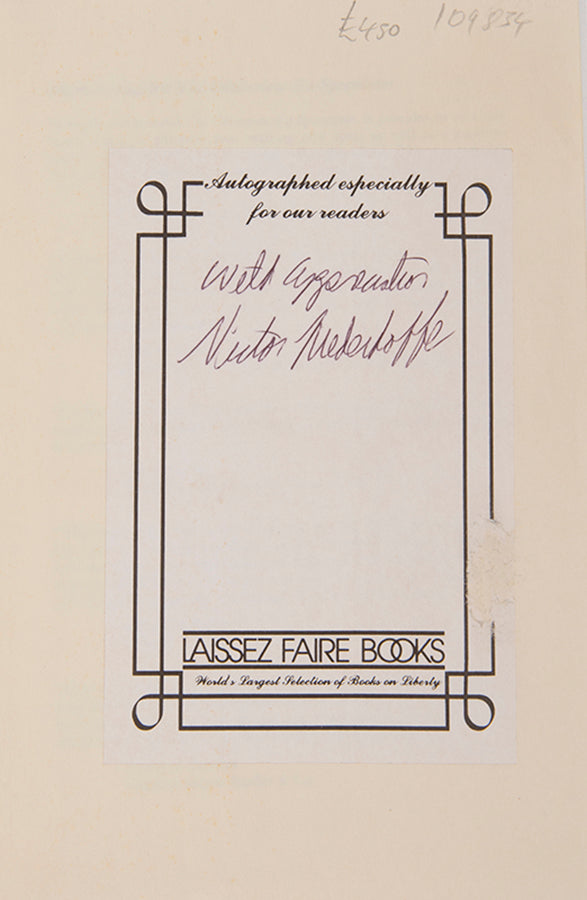 £450 109834
Autographed especially
for our readers
with appreciation
Victor Niederhoffer
LAISSEZ FAIRE BOOKS
World's Largest Selection of Books on Liberty